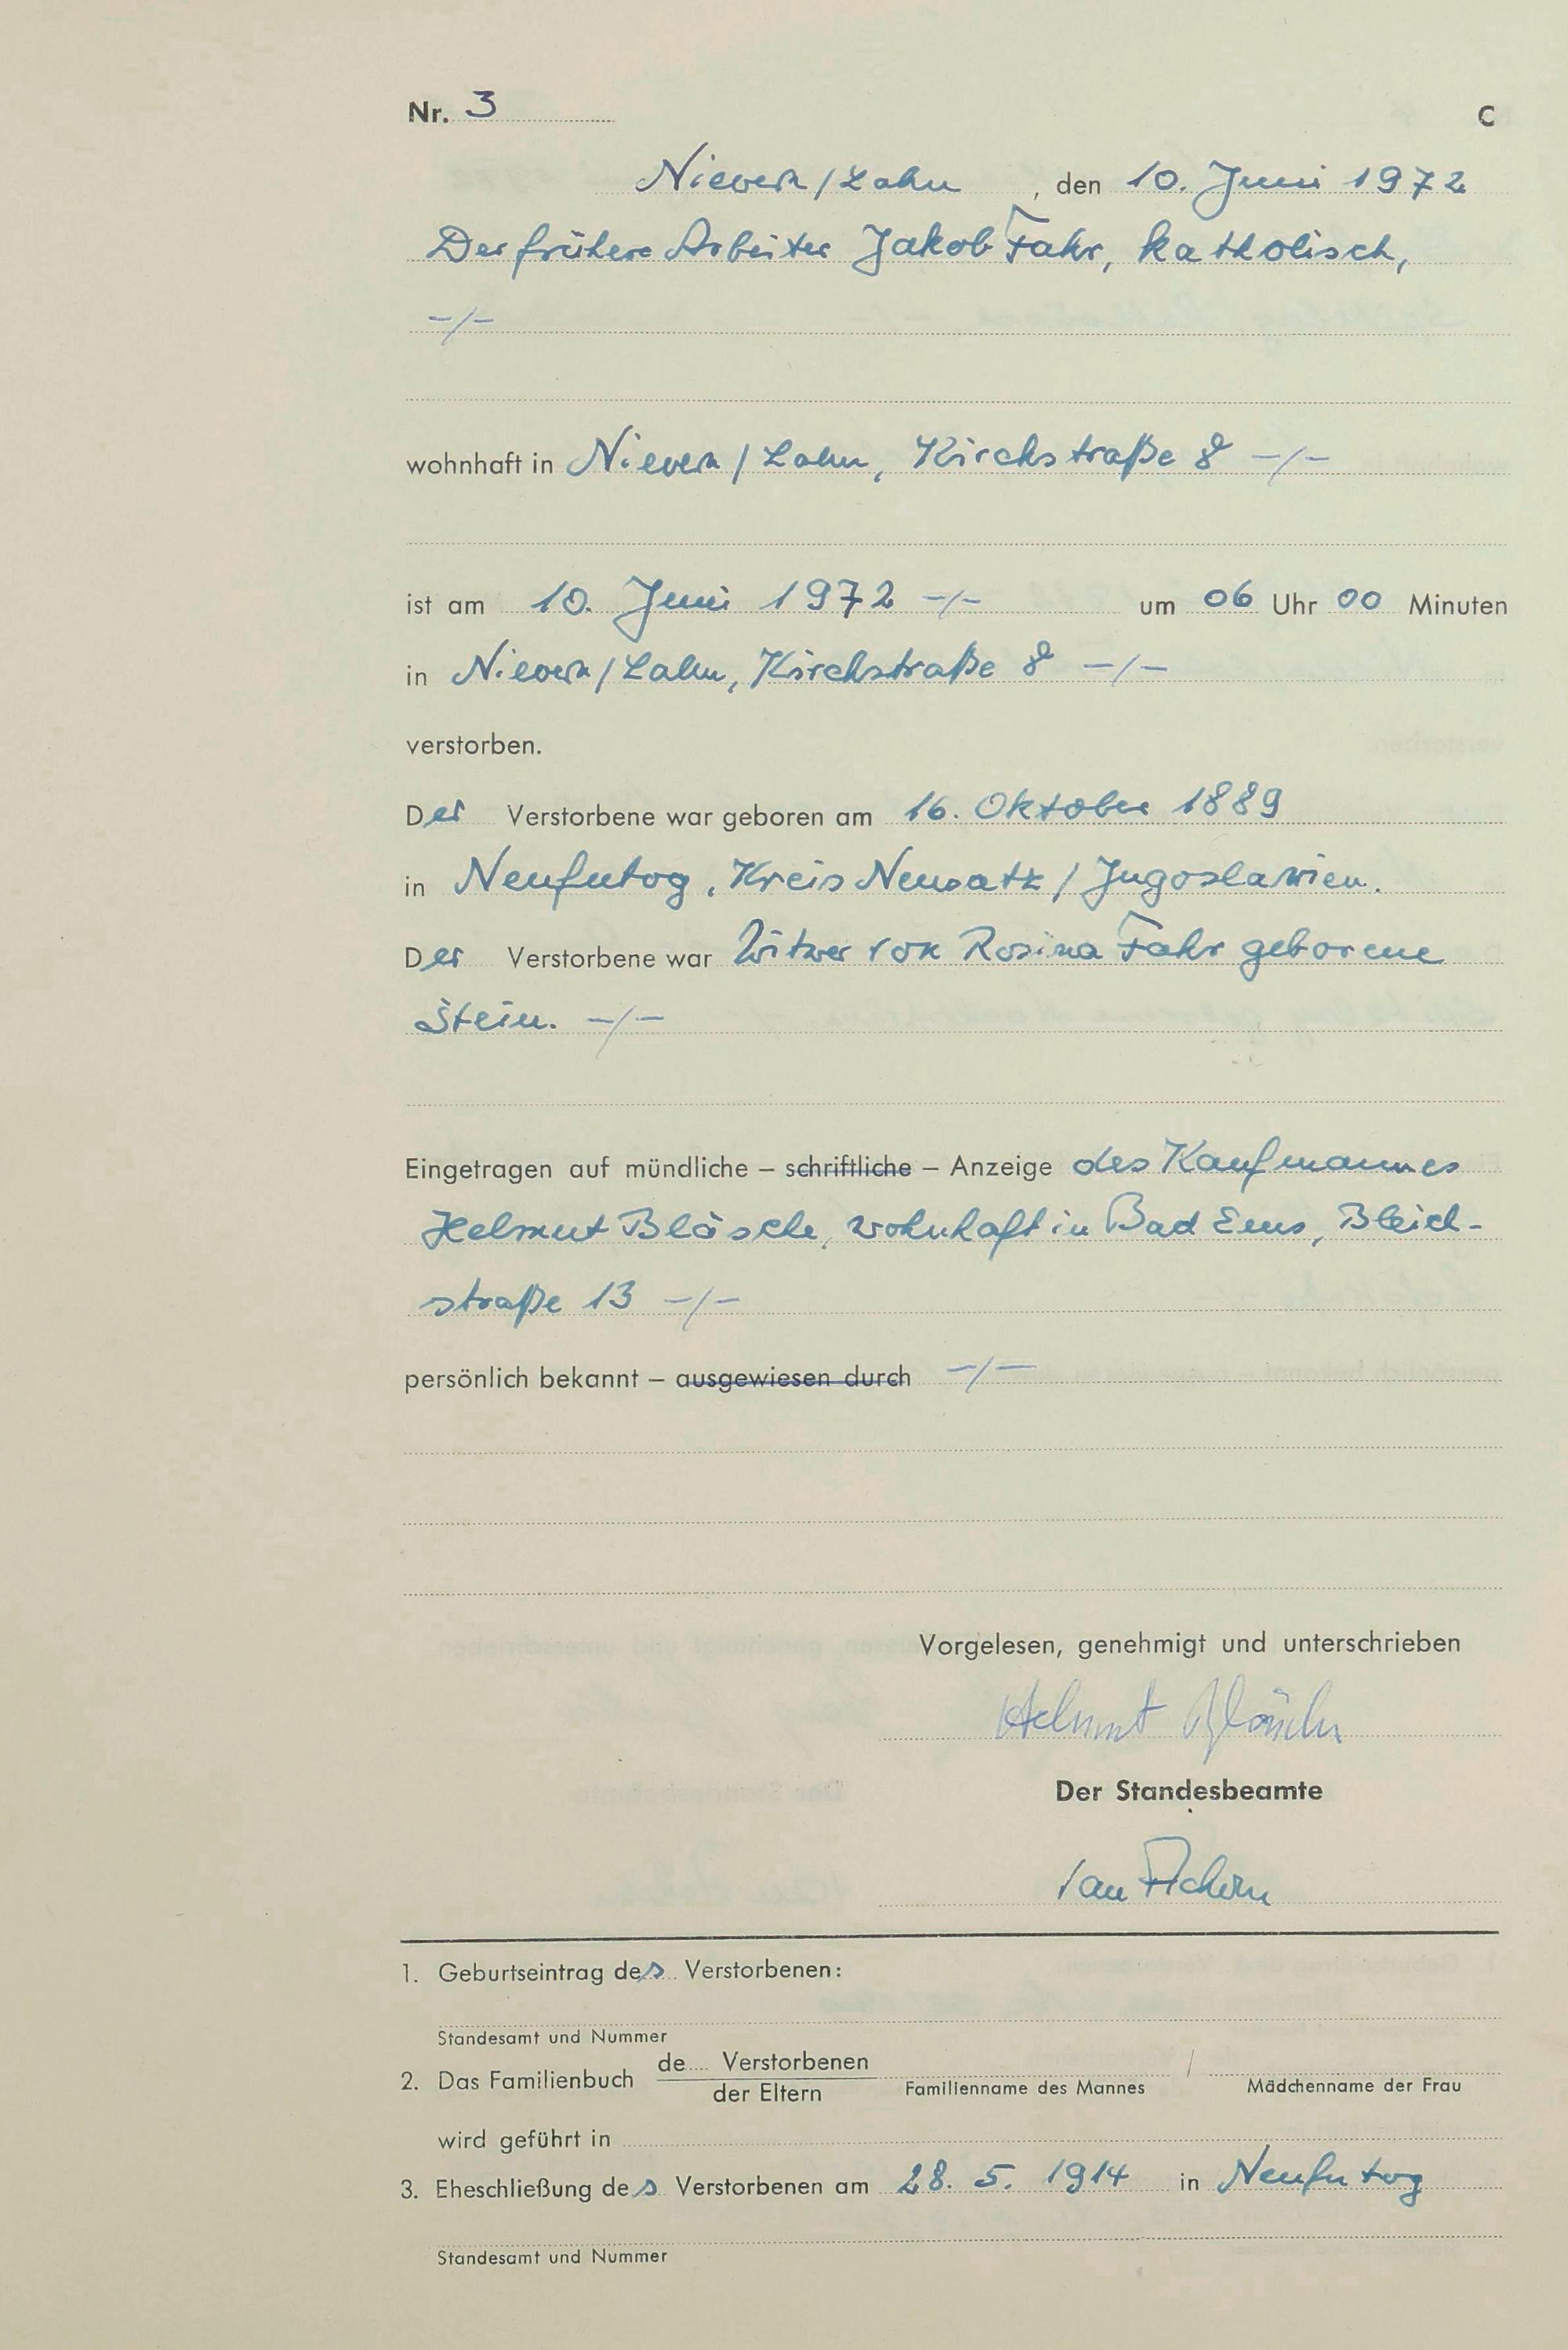 Nr. 3
C
Nievern/Lahn, den 10. Juni 1972
Der frühere Arbeiter Jakob Fahr, katholisch,
-/-
wohnhaft in Nievern/Lahn, Kirchstraße 8 -/-
ist am 10. Juni 1972 -/- um 06 Uhr 00 Minuten
in Nievern/Lahn, Kirchstraße 8 -/-
verstorben.
Der Verstorbene war geboren am 16. Oktober 1889
in Neufutog, Kreis Neusatz/Jugoslawien.
Der Verstorbene war Witwer von Rosina Fahr geborene
Stein. -/-
Eingetragen auf mündliche – schriftliche – Anzeige des Kaufmannes
Helmut Bläsche, wohnhaft in Bad Ems, Bleich-
straße 13 -/-
persönlich bekannt – ausgewiesen durch -/-
Vorgelesen, genehmigt und unterschrieben
Helmut
Der Standesbeamte
1. Geburtseintrag des Verstorbenen:
Standesamt und Nummer
2. Das Familienbuch de.... Verstorbenen
der Eltern
/
Familienname des Mannes Mädchenname der Frau
wird geführt in
3. Eheschließung des Verstorbenen am 28. 5. 1914 in Neufutog
Standesamt und Nummer